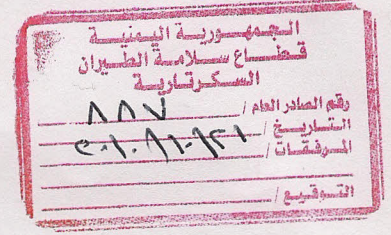 الجمهورية اليمنية
قطاع سلامة الطيران
السكرتارية
رقم الصادر العام / ٨٨٧
التاريخ /
المرفقات /
التوقيع /